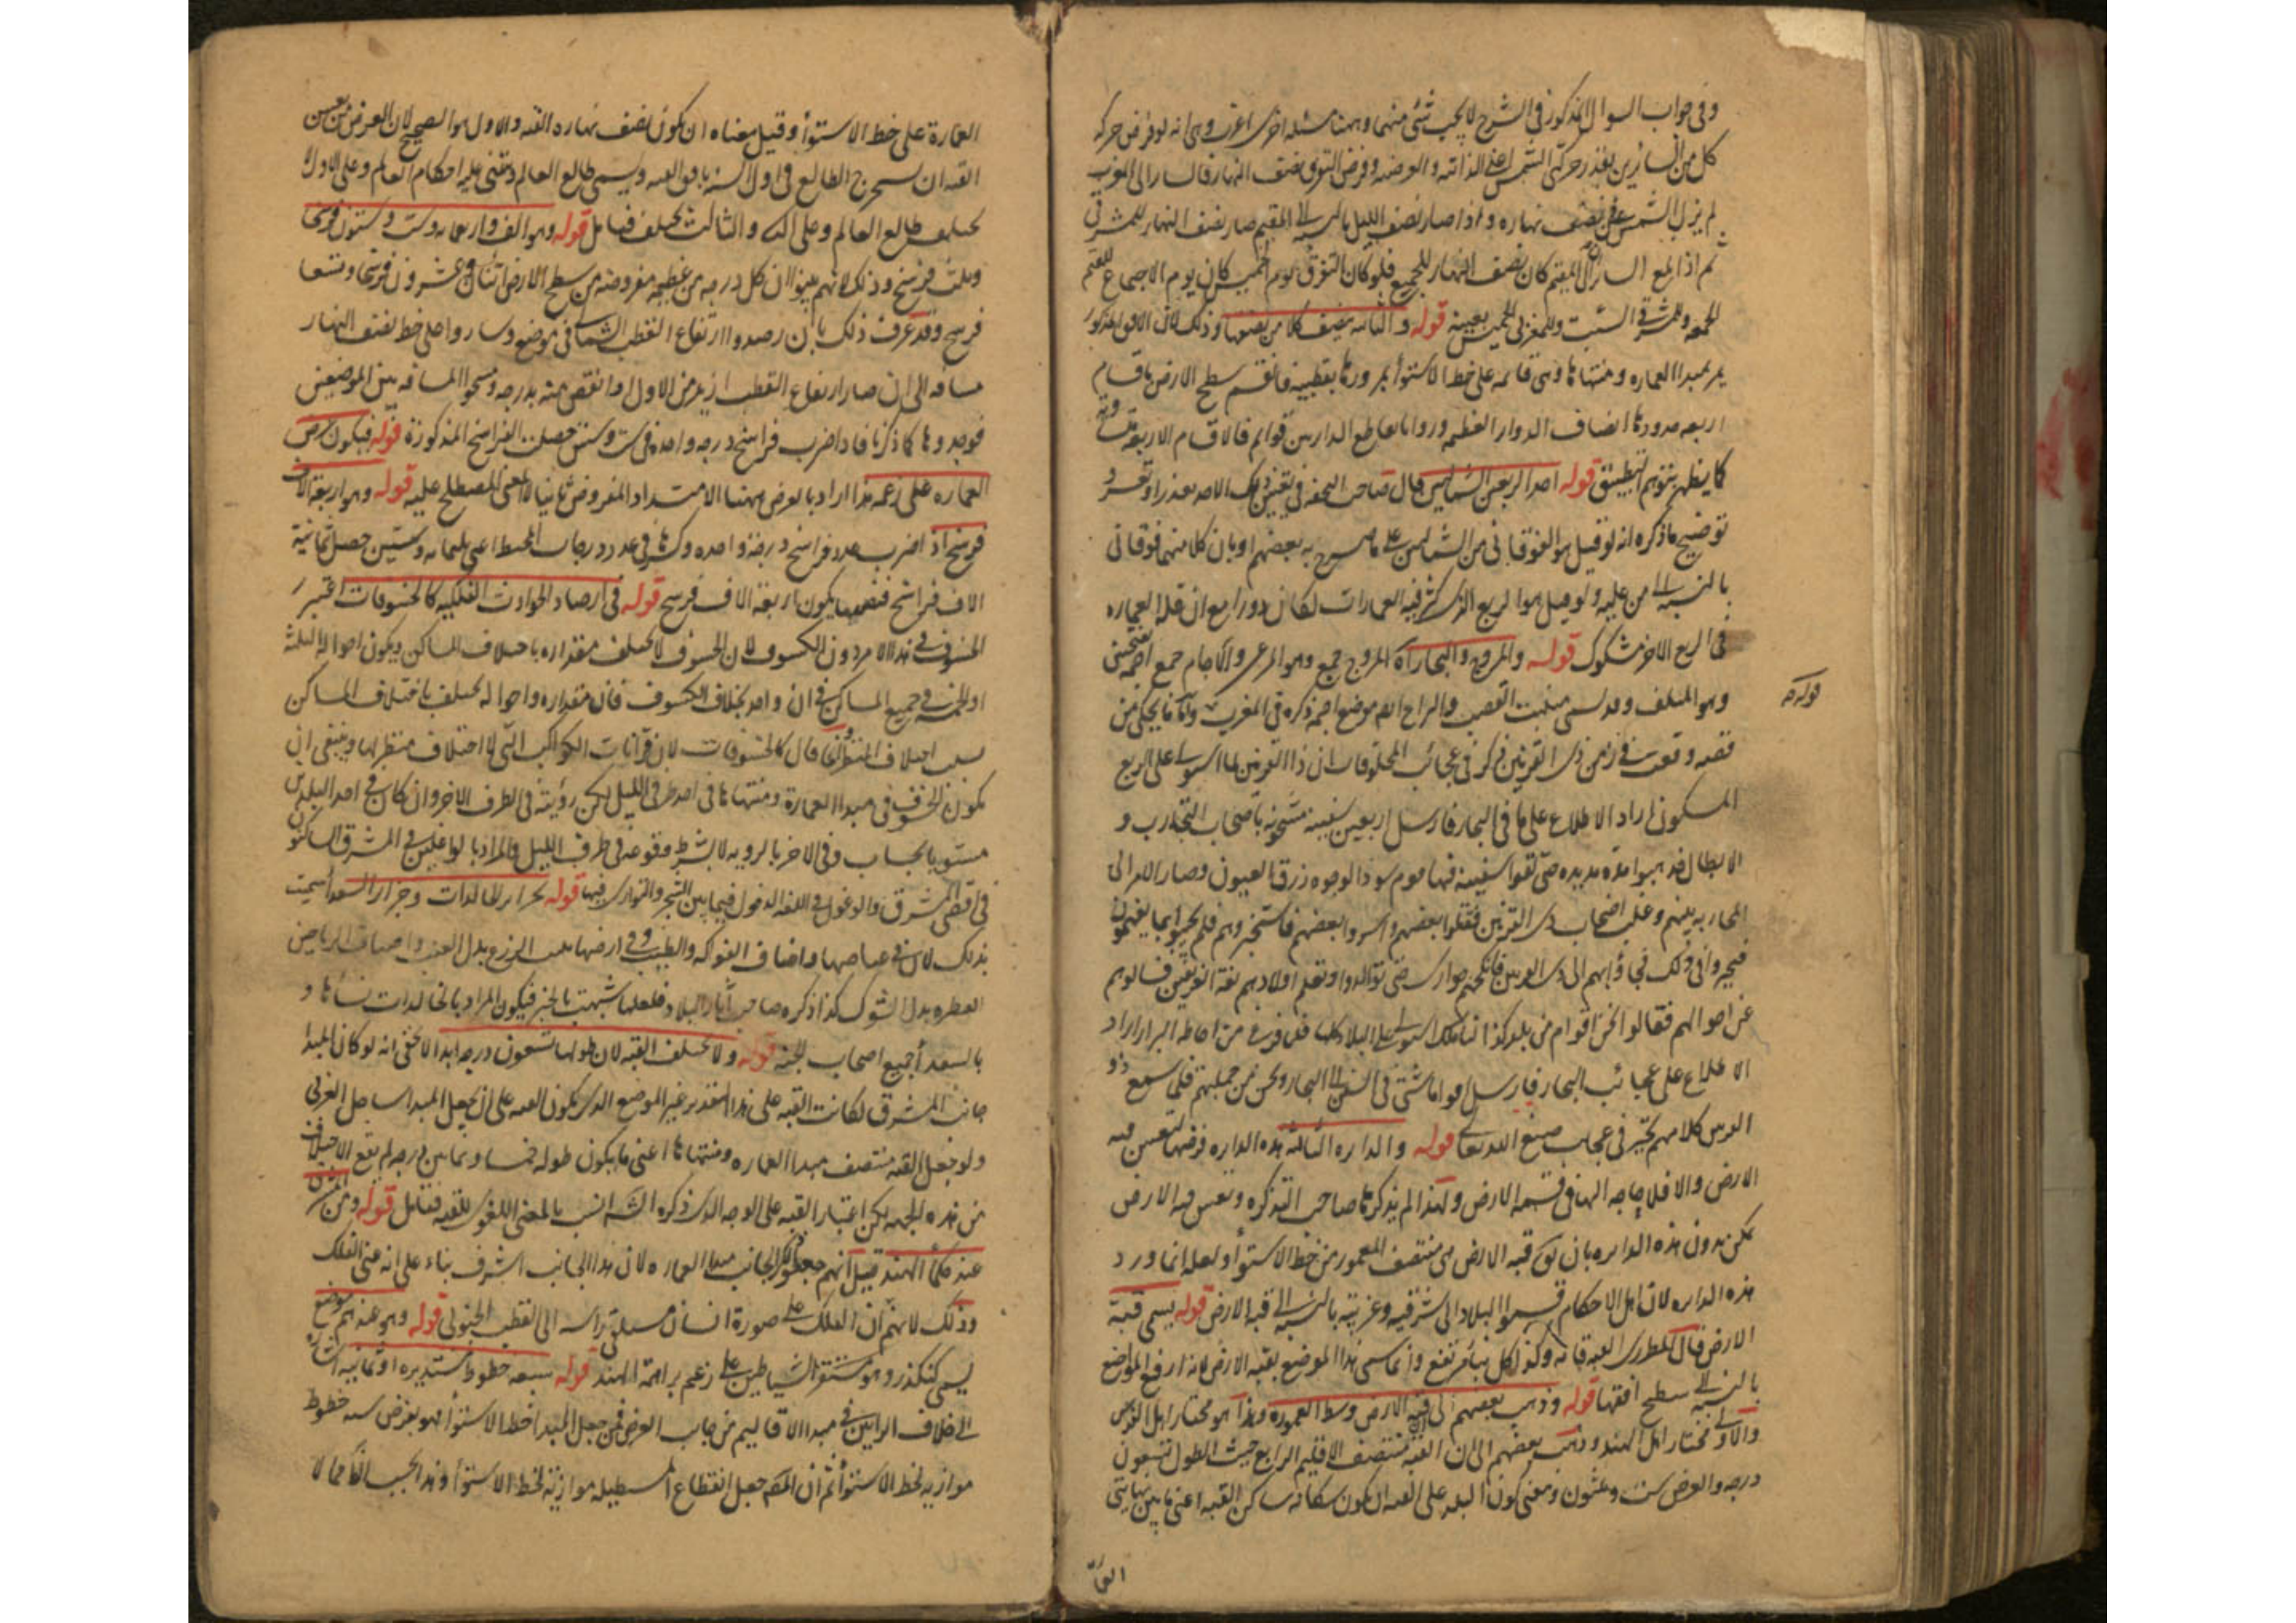 وفى جواب السوال المذكور فى الشرح لا يجب شئ منهما وههنا مسئلة اخرى اغرب وهى انه لو فرض حركة
كل من السائرين بقدر حركة الشمس اعنى الذاتيه والعرضيه وفرض التفرق نصف النهار فالسائر الى المغرب
لم يزل الشمس على نصف نهاره واذا صار نصف الليل بالنسبة الى المقيم صار نصف النهار للمشرقى
ثم اذا بلغ السائران المقيم كان نصف النهار للجميع فلو كان التفرق يوم الخميس كان يوم الاجتماع للمقيم
الجمعه وللمشرقى السبت وللمغربى الخميس بعينه قوله والثانيه ينصف كلا من نصفيها وذلك لان الافق المذكور
يمر بمبدا العماره ومنتهاها وهى قائمه على خط الاستوأ بمرورها بقطبيه فانقسم سطح الارض باقسام
اربعه حدودها انصاف الدوائر العظيمه وزوايا تقاطع الدائرتين قوائم فالاقسام الاربعة متساويه
كما يظهر بتوهم التطبيق قوله احد الربعين الشماليين قال صاحب التحفه فى تعيين ذلك الاحد تعذر او تعسر و
توضيح ما ذكره انه لو قيل هو الفوقانى من الشماليين على ما صرح به بعضهم او بان كلا منهما فوقانى
بالنسبة الى من عليه ولو قيل هو الربع الذى كثر فيه العمارات لكان دورا مع ان قلة العماره
فى الربع الاخر مشكوك قوله والمروج والبحار آه المروج جمع وهو المرعى والآجام جمع اجمه بفتحتين
قوله
وهو الملتف وقد سمى منبت القصب والراح ايضا موضع اجمه ذكره فى المغرب واما ما يحكى من
قصه وقعت فى زمن ذى القرنين ذكر فى عجائب المخلوقات ان ذا القرنين لما استولى على الربع
المسكون اراد الاطلاع على ما فى البحار فارسل اربعين سفينة مشحونة باصحاب التجارب و
الابطال فذهبوا مدة مديده حتى لقوا سفينة فيها قوم سود الوجوه زرق العيون وصار الامر الى
المحاربه بينهم وغلب اصحاب ذى القرنين فقتلوا بعضهم واسروا بعضهم فاستخبروهم فلم يجيبوا بما يفهمون
فتحيروا فى ذلك فجاؤا بهم الى ذى القرنين فانكحهم جوارى حتى توالدوا وتعلم اولادهم لغة الفريقين فسالوهم
عن احوالهم فقالوا نحن اقوام من بلد كذا لنا ملك استولى على البلاد كلها فلما فرغ من احاطة البر اراد
الاطلاع على عجائب البحار فارسل افواما شتى فى السفن الى البحار ونحن من جملتهم فلما سمع ذو
القرنين كلامهم تحير فى عجايب صنع الله تعالى قوله والدائره الثالثه هذه الدائره فرضها لتعيين قبه
الارض والا فلا حاجه اليها فى قسمة الارض ولهذا لم يذكرها صاحب التذكره وتعيين قبه الارض
يمكن بدون هذه الدائره بان يكون قبه الارض هى منتصف المعمور من خط الاستوأ ولعله انما ورد
هذه الدائره لان اهل الاحكام قسموا البلاد الى شرقيه وغربيه بالنسبة الى قبه الارض قوله يسمى قبة
الارض قال المطرزى القبة وكذا لكل بناء مرتفع وانما سمى هذا الموضع بقبه الارض لانه ارفع المواضع
بالنسبة الى سطح افقها قوله وذهب بعضهم الى قبة الارض وسط المعموره وهذا هو مختار اهل الفرس
والاولى مختار اهل الهند وذهب بعضهم الى ان القبه منتصف الاقليم الرابع حيث الطول تسعون
درجه والعرض ست وثلثون ومعنى كون البلد على القبه ان يكون سكانه ساكن القبه اعنى ما بين نهايتى
العمارة على خط الاستوأ وقيل معناه ان يكون نصف نهاره القبه والاول هو الصحيح لان الغرض من تعيين
القبه ان يستخرج الطالع فى اول السنه بافق القبه ويسمى طالع العالم ويبتنى عليه احكام العالم وعلى الاول لا
يختلف طالع العالم وعلى الثانى والثالث يختلف فتامل قوله وهو الف واربعمايه وست وستون فرسخا
وثلث فرسخ وذلك لانهم بينوا ان كل درجه من عظيمه مفروضه من سطح الارض اثنان وعشرون فرسخا وتسعا
فرسخ وقد عرف ذلك بان رصدوا ارتفاع القطب الشمالى فى موضع وساروا على خط نصف النهار
مسافه الى ان صار ارتفاع القطب ازيد من الاول او انقص منه بدرجه ومسحوا المسافه بين الموضعين
فوجدوها كما ذكرنا فاذا ضرب فراسخ درجه واحده فى ست وستين حصلت الفراسخ المذكورة قوله فيكون عرض
العماره على زعمه هذا اراد بالعرض ههنا الامتداد المفروض ثانيا لا المعنى المصطلح عليه قوله وهو اربعة الاف
فرسخ اذا ضرب عدد فراسخ درجة واحده وكسرها فى عدد درجات المحيط اعنى ثلثمايه وستين حصل ثمانية
الاف فراسخ فنصفها يكون اربعة الاف فرسخ قوله فى ارصاد الحوادث الفلكيه كالخسوفات اعتبر
الخسوف فى هذا الامر دون الكسوف لان الخسوف لا يختلف مقداره باختلاف المساكن ويكون احواله الثلثه
او الخمسه فى جميع المساكن فى ان واحد بخلاف الكسوف فان مقداره واحواله يختلف باختلاف المساكن
بسبب اختلاف المنظر وانما قال كالخسوفات لان قرانات الكواكب التى لا اختلاف منظر لها وينبغى ان
يكون الخسوف فى مبدا العمارة ومنتهاها فى احد طرفى الليل ليمكن رؤيته فى الطرف الاخر وان كان فى احد البلدين
مستويا بحساب وفى الاخر بالرويه لا بشرط وقوعه فى طرف الليل والمراد بالواغلين فى المشرق الساكنون
فى اقصى المشرق والوغول فى اللغه الدخول فيما بين الشجر والتوارى فيها قوله بجزائر الخالدات وجزائر السعدا سميت
بذلك لان فى غياضها اصناف الفواكه والطيب وفى ارضها ينبت الزرع بدل العشب واصناف الرياحين
العطره بدل الشوك كذا ذكره صاحب آثار البلاد فلعلها شبهت بالجنة فيكون المراد بالخالدات نساءها و
بالسعدأ جميع اصحاب الجنه قوله ولا يختلف القبه لان طولها تسعون درجه ابدا لا يخفى انه لو كان المبدا
جانب المشرق لكانت القبه على هذا التقدير غير الموضع الذى يكون القبه على ان يجعل المبدا ساحل الغربى
ولو جعل القبه منتصف مبدا العماره ومنتهاها اعنى ما يكون طوله خمسا وثمانين درجه لم يقع الاختلاف
من هذه الجهه لكن اعتبار القبه على الوجه الذى ذكره الشه انسب بالمعنى اللغوى للقبه فتامل قوله ومن المشرق
عند حكمأ الهند قيل انهم جعلوا ذلك الجانب مبدأ العماره لان هذا الجانب اشرف بناء على انه يمين الفلك
وذلك لانهم ان الفلك على صورة انسان مستلق راسه الى القطب الجنوبى قوله وهو عندهم موضع
يسمى كنكدز وهو مستقر الشياطين على زعم براهمة الهند قوله سبعه خطوط مستديره او ثمانيه اشاره
الى اختلاف الرايين فى مبدا الاقاليم من جانب العرض فمن جعل المبدا خط الاستوأ فهو يفرض سبعه خطوط
موازيه لخط الاستوأ ثم ان المص جعل القطاع المستطيله موازية لخط الاستوأ وهذا بحسب الظ مما لا
العمارة